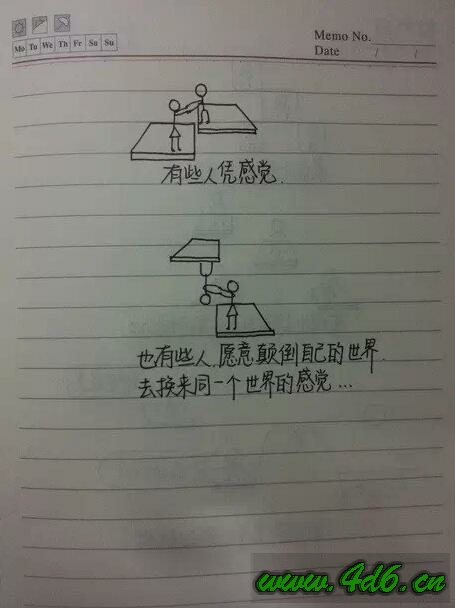 Memo No.
Mo Tu We Th Fr Sa Su
Date / /
有些人凭感觉.
也有些人.愿意颠倒自己的世界.
去换来同一个世界的感觉...
www.4d6.cn